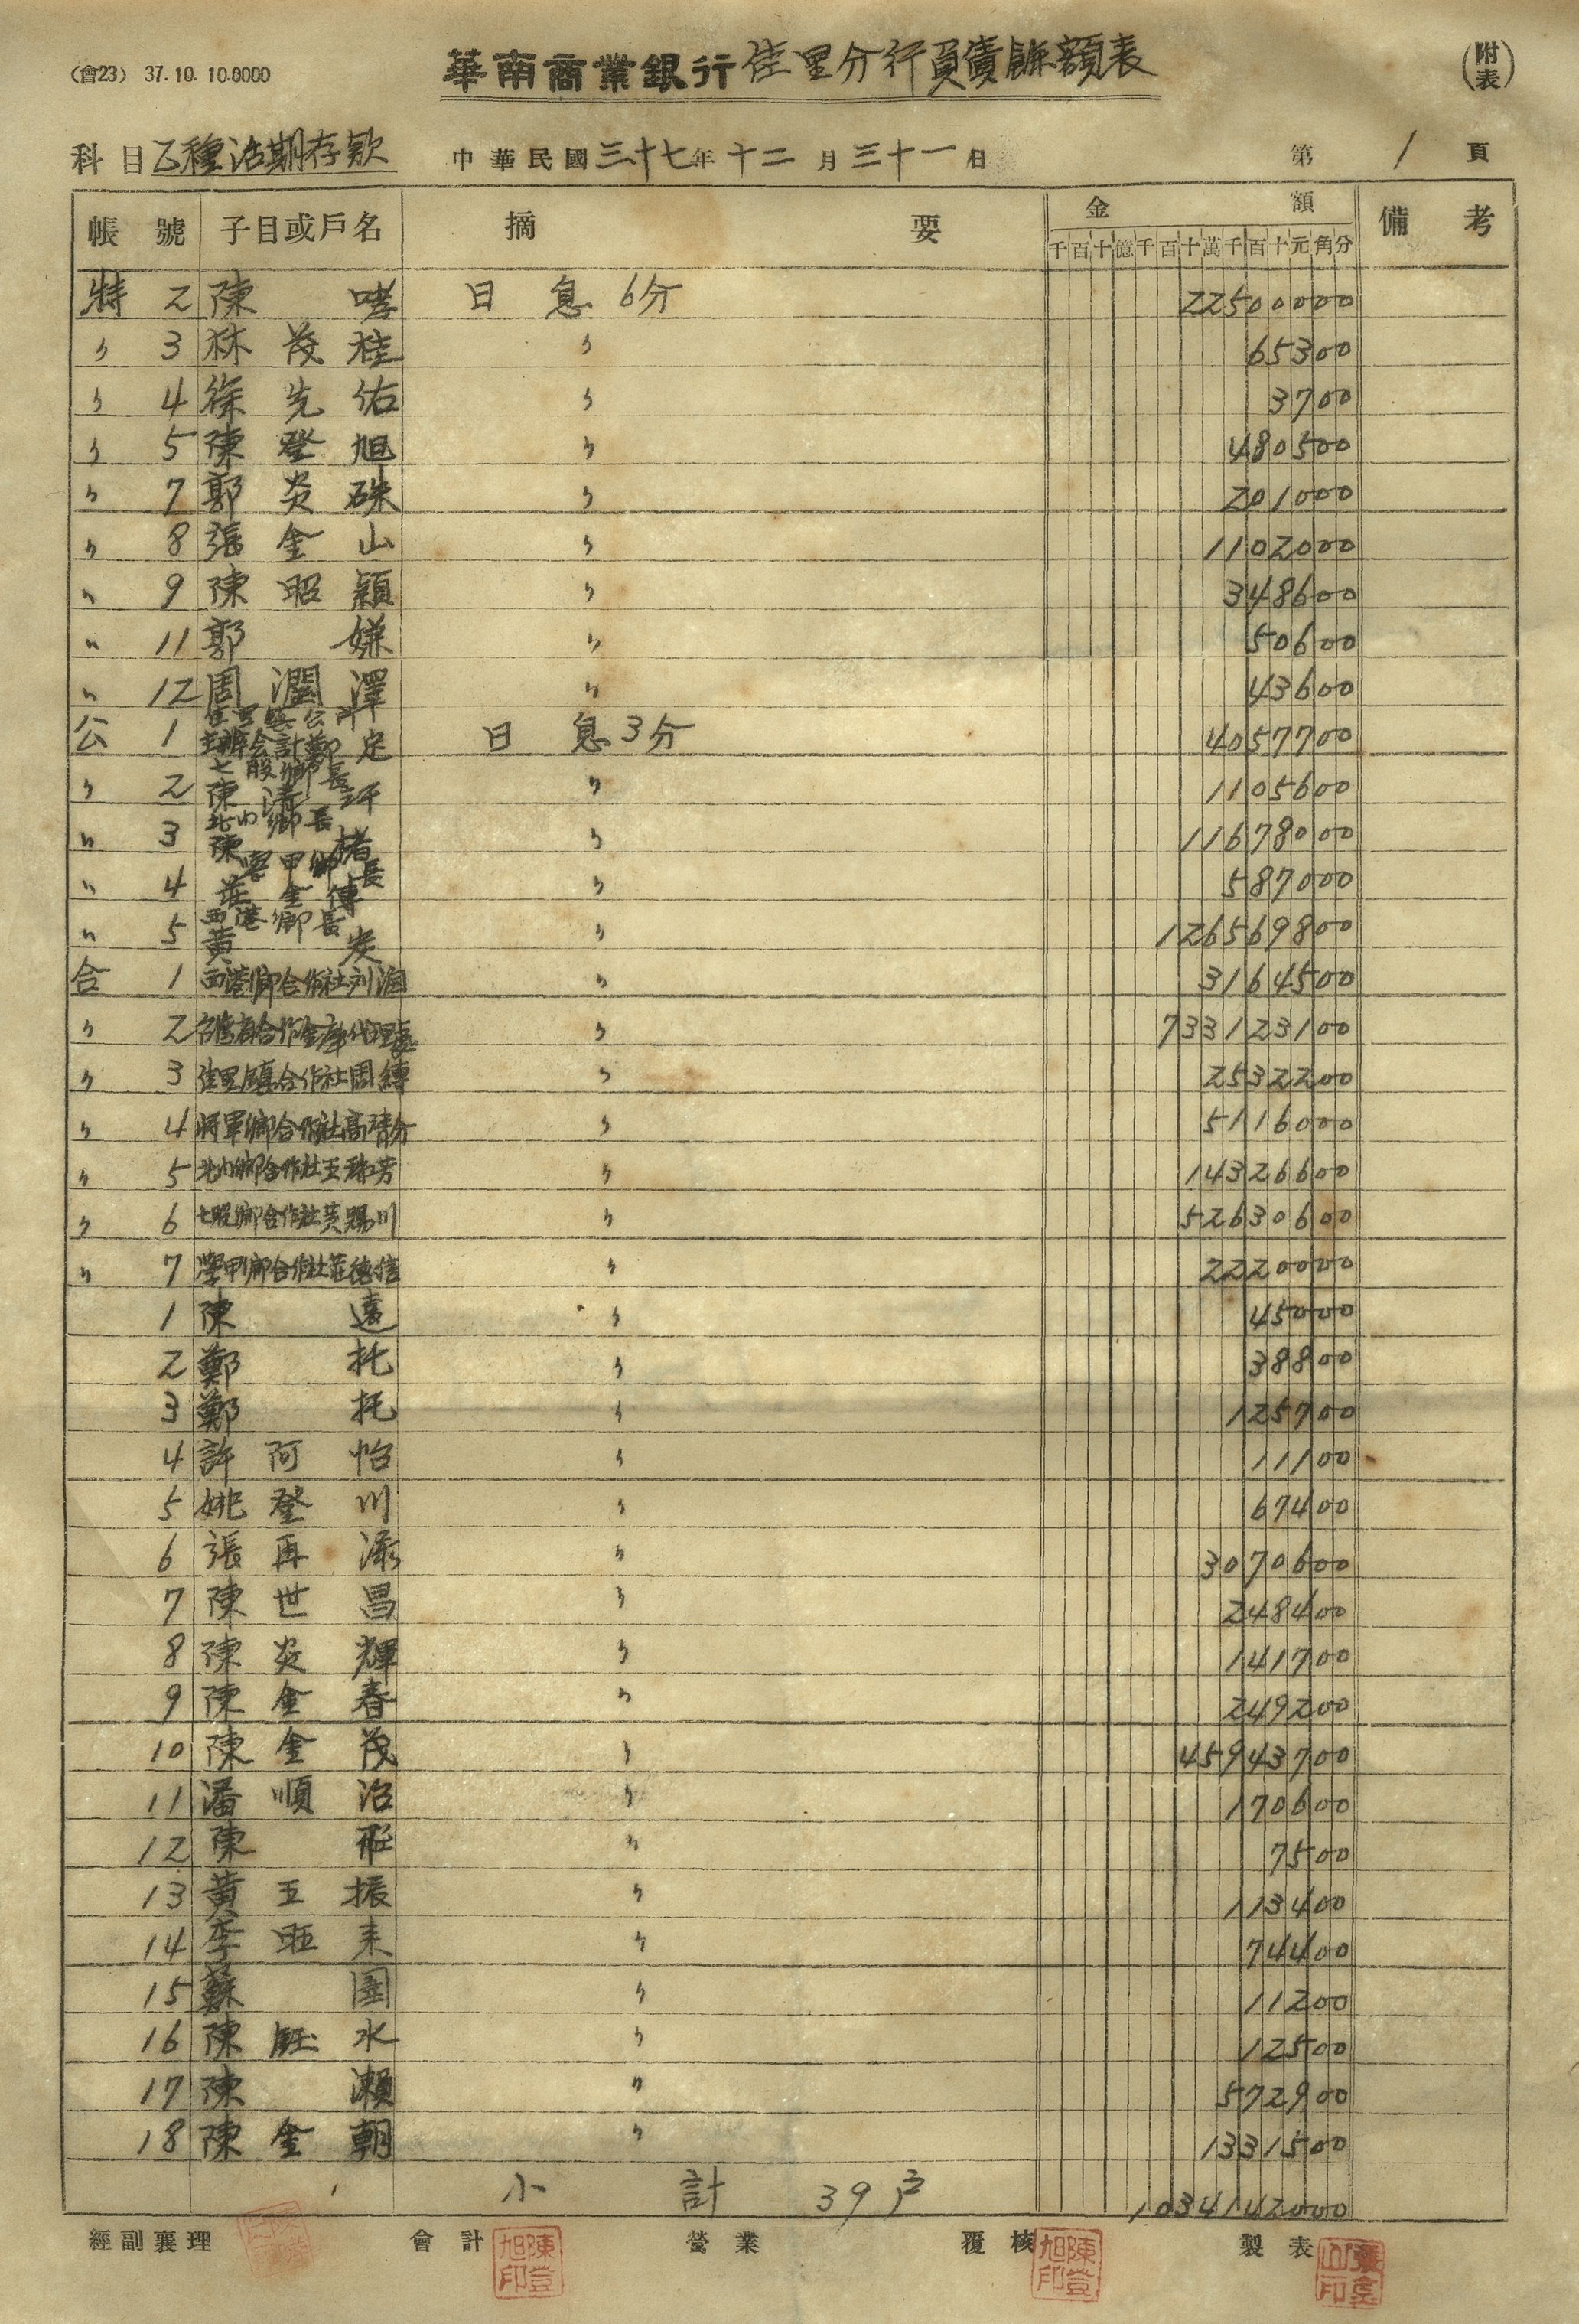 (會23) 37.10. 10.0000
華南商業銀行佳里分行負債餘額表
(附表)
科目乙種活期存款 中華民國三十七年十二月三十一日 第 1 頁
帳號 子目或戶名 摘要 金額 備考
千百十億千百十萬千百十元角分
特 2 陳 哮 日息 6分 22500000
〃 3 林茂桂 〃 65300
〃 4 徐先佑 〃 3700
〃 5 陳登旭 〃 480500
〃 7 郭炎硃 〃 201000
〃 8 張金山 〃 1102000
〃 9 陳昭穎 〃 348600
〃 11 郭 嫌 〃 50600
〃 12 周潤澤 〃 43600
公 1 佳里鎮公所主辦會計鄭定 日息3分 4057700
〃 2 七股鄉長陳清汗 〃 1105600
〃 3 北門鄉長陳楮 〃 11678000
〃 4 學甲鄉長莊金傳 〃 587000
〃 5 西港鄉長黃炭 〃 126569800
合 1 西港鄉合作社刘淘 〃 3164500
〃 2 台灣省合作金庫代理處 〃 733123100
〃 3 佳里鎮合作社周縛 〃 2532200
〃 4 將軍鄉合作社高清分 〃 5116000
〃 5 北门鄉合作社王珠芳 〃 14326600
〃 6 七股鄉合作社黃賜川 〃 52630600
〃 7 學甲鄉合作社莊德信 〃 2220000
1 陳 遠 〃 45000
2 鄭 托 〃 38800
3 鄭 托 〃 125700
4 許阿怡 〃 11100
5 姚登川 〃 67400
6 張再添 〃 3070600
7 陳世昌 〃 248400
8 陳炎輝 〃 141700
9 陳金春 〃 249200
10 陳金茂 〃 45943700
11 潘順治 〃 170600
12 陳 〃 7500
13 黃五振 〃 113400
14 李 來 〃 74400
15 蘇 圍 〃 11200
16 陳 水 〃 12500
17 陳 瀨 〃 572900
18 陳金朝 〃 1331500
小計 39戶 1034142000
經副襄理 會計 營業 覆核 製表
陳登旭印 陳登旭印 張金山印